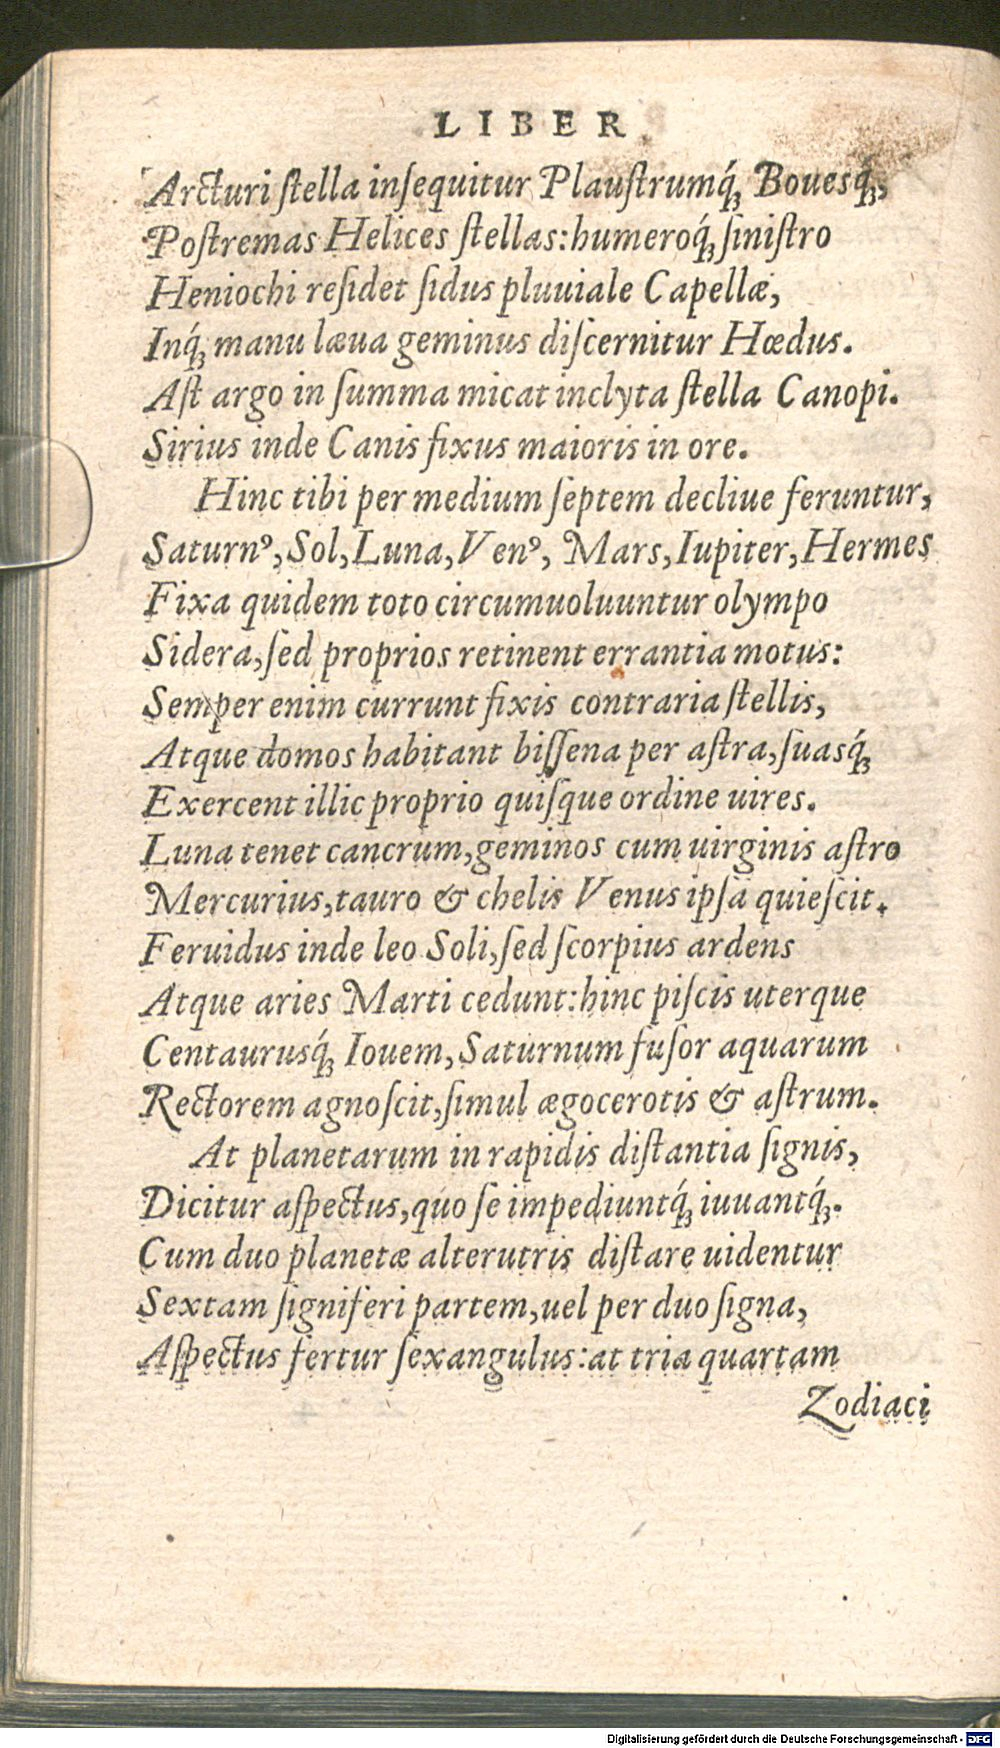 LIBER
Arcturi ſtella inſequitur Plauſtrumq́ꝫ Bouesq́ꝫ,
Poſtremas Helices ſtellas: humeroq́ꝫ ſiniſtro
Heniochi reſidet ſidus pluuiale Capellæ,
Inq́ꝫ manu læua geminus diſcernitur Hœdus.
Aſt argo in ſumma micat inclyta ſtella Canopi.
Sirius inde Canis fixus maioris in ore.
Hinc tibi per medium ſeptem decliue feruntur,
Saturnꝰ, Sol, Luna, Venꝰ, Mars, Iupiter, Hermes
Fixa quidem toto circumuoluuntur olympo
Sidera, ſed proprios retinent errantia motus:
Semper enim currunt fixis contraria ſtellis,
Atque domos habitant biſſena per aſtra, ſuasq́ꝫ
Exercent illic proprio quiſque ordine uires.
Luna tenet cancrum, geminos cum uirginis aſtro
Mercurius, tauro & chelis Venus ipſa quieſcit.
Feruidus inde leo Soli, ſed ſcorpius ardens
Atque aries Marti cedunt: hinc piſcis uterque
Centaurusq́ꝫ Iouem, Saturnum fuſor aquarum
Rectorem agnoſcit, ſimul ægocerotis & aſtrum.
At planetarum in rapidis diſtantia ſignis,
Dicitur aſpectus, quo ſe impediuntq́ꝫ iuuantq́ꝫ.
Cum duo planetæ alterutris diſtare uidentur
Sextam ſigniferi partem, uel per duo ſigna,
Aſpectus fertur ſexangulus: at tria quartam
Zodiaci
Digitalisierung gefördert durch die Deutsche Forschungsgemeinschaft - DFG